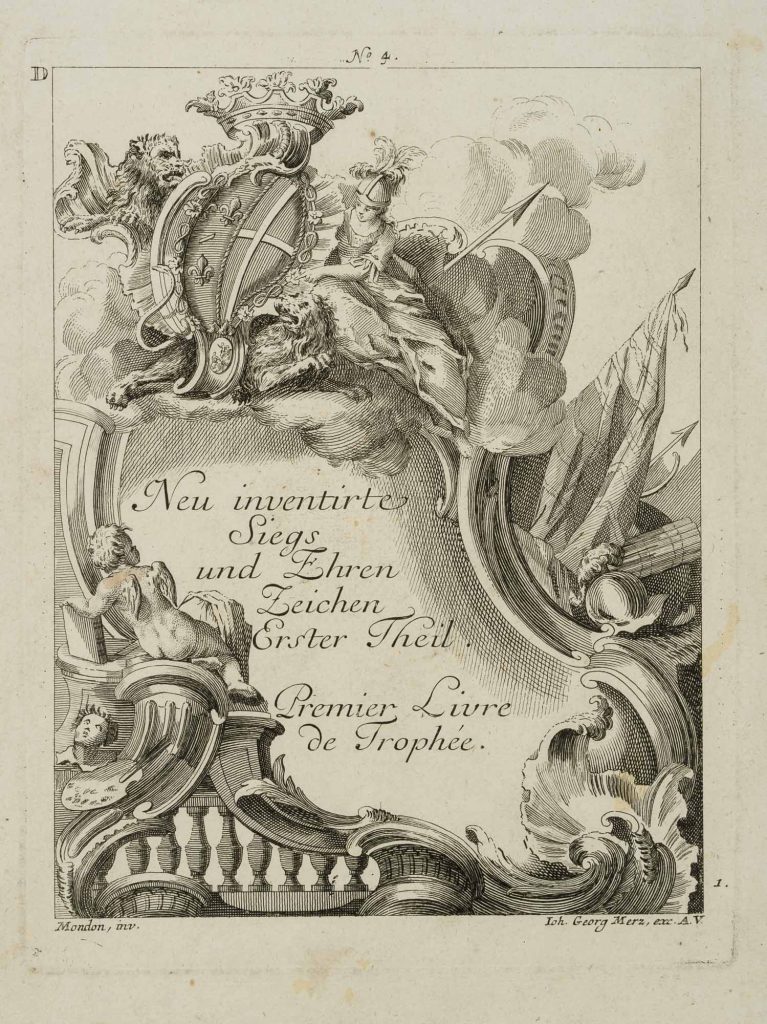 Nº 4.
D
Neu inventirte
Siegs
und Ehren
Zeichen
Erster Theil.
Premier Livre
de Trophée.
1.
Mondon, inv.
Ioh. Georg Merz, exc. A.V.